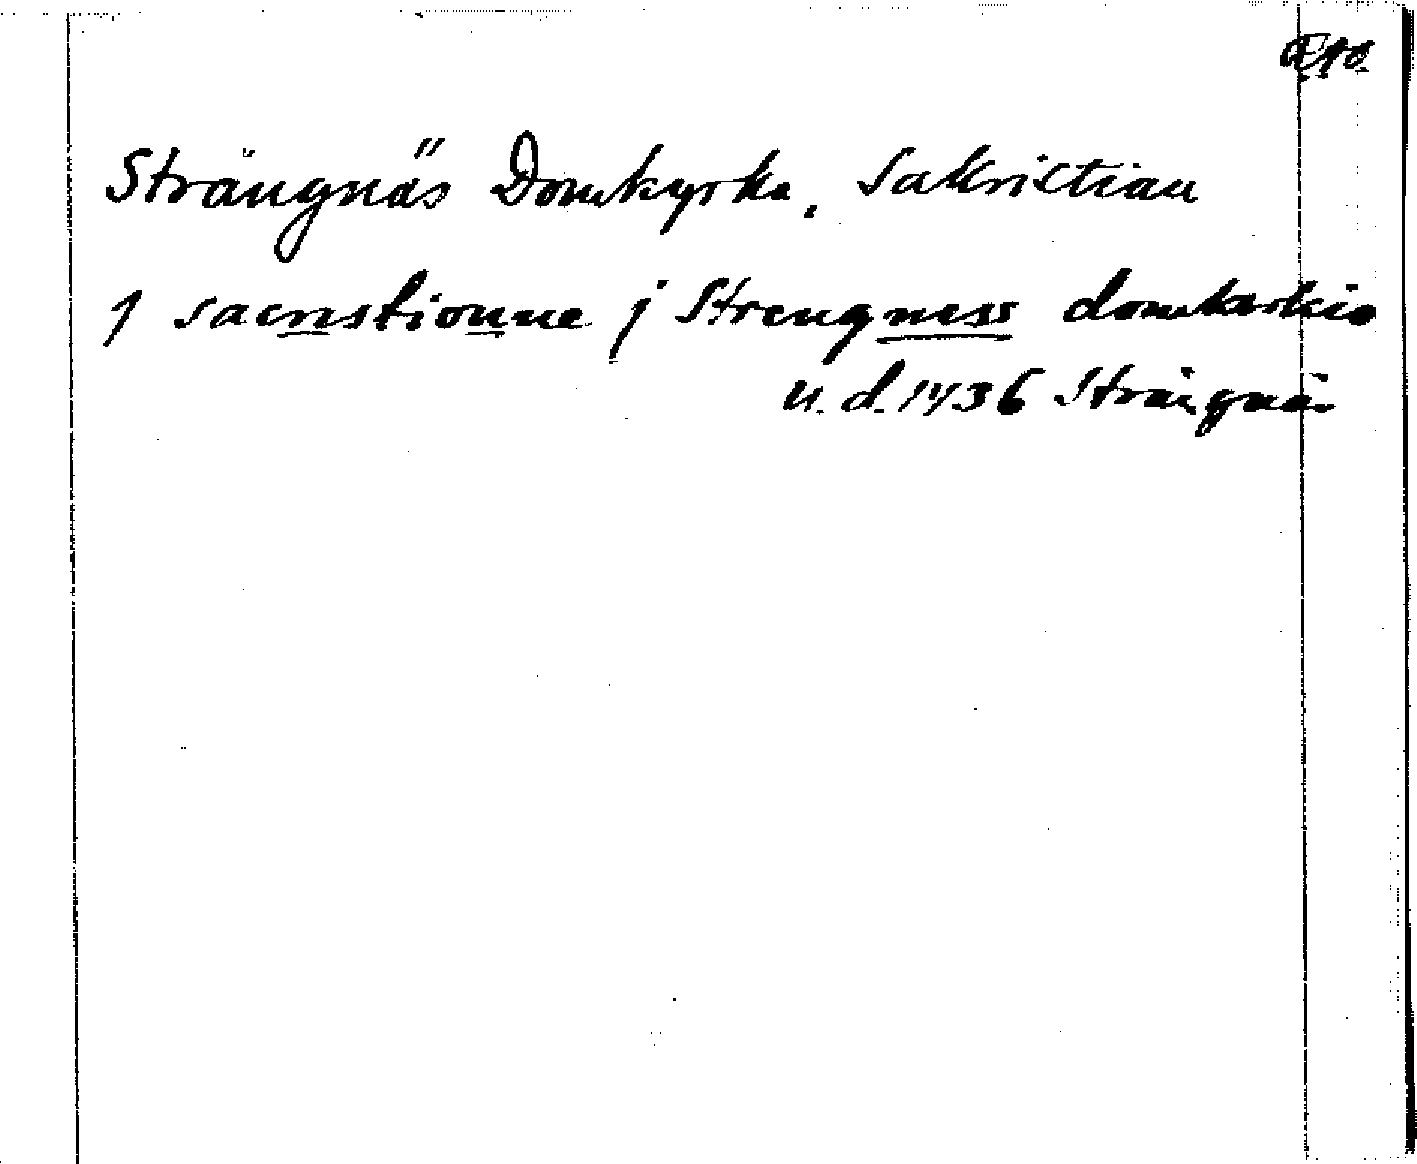 Strängnäs Domkyrka, Sakristian
J sacristionne j Strengness domkirkio
u. d. 1436 Strängnäs